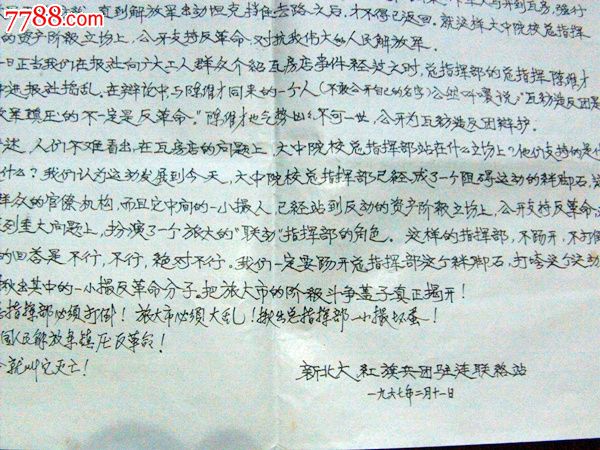 7788.com
直到解放军出动坦克挡住去路之后，才不得已返回。就这样大中院校总指挥
的资产阶级立场上，公开支持反革命，对抗我伟大的人民解放军。
日正当我们在报社向广大工人群众介绍瓦房店事件经过之时，总指挥部的总指挥陈维才
报社捣乱，在辩论中与陈维才同来的一个人（不敢公开自己的名字）公然叫嚣说，“瓦勤造反团是
镇压的不一定是反革命。”陈维才也气势凶凶不可一世，公开为瓦勤造反团辩护。
述，人们不难看出，在瓦房店的问题上，大中院校总指挥部站在什么立场上？他们支持的是什
什么？我们认为运动发展到今天，大中院校总指挥部已经成了一个阻碍运动的绊脚石，
群众的官僚机构，而且它中间的一小撮人，已经站到反动的资产阶级立场上，公开支持反革命
到重大问题上，扮演了一个旅大的“联动”指挥部的角色。这样的指挥部，不踢开，不打倒
的回答是不行，不行，绝对不行。我们一定要踢开总指挥部这个绊脚石，打碎这个运动
揪出其中的一小撮反革命分子。把旅大市的阶级斗争盖子真正揭开！
总指挥部必须打倒！旅大市必须大乱！揪出总指挥部一小撮坏蛋！
国人民解放军镇压反革命！
就叫它灭亡！
新北大红旗兵团驻连联络站
一九六七年二月十一日